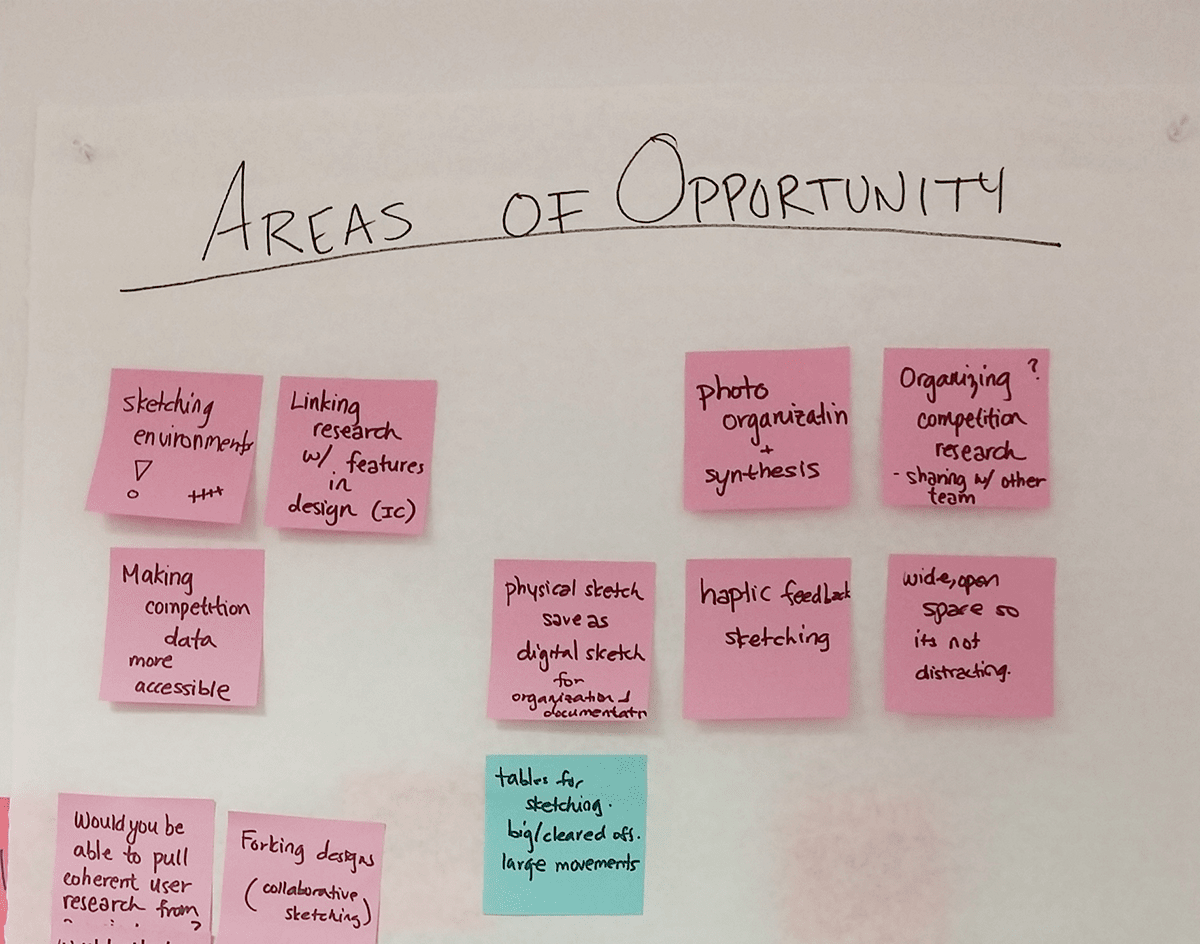 AREAS OF OPPORTUNITY
sketching
environments
!
++++
Linking
research
w/ features
in
design (IC)
photo
organizatin
+
synthesis
Organizing ?
competition
research
- sharing w/ other
team
Making
competition
data
more
accessible
physical sketch
save as
digital sketch
for
organization &
documentatn
haptic feedback
sketching
wide, open
space so
its not
distracting.
tables for
sketching.
big/cleared off.
large movements
Would you be
able to pull
coherent user
research from
?
Forking designs
(collaborative
sketching)